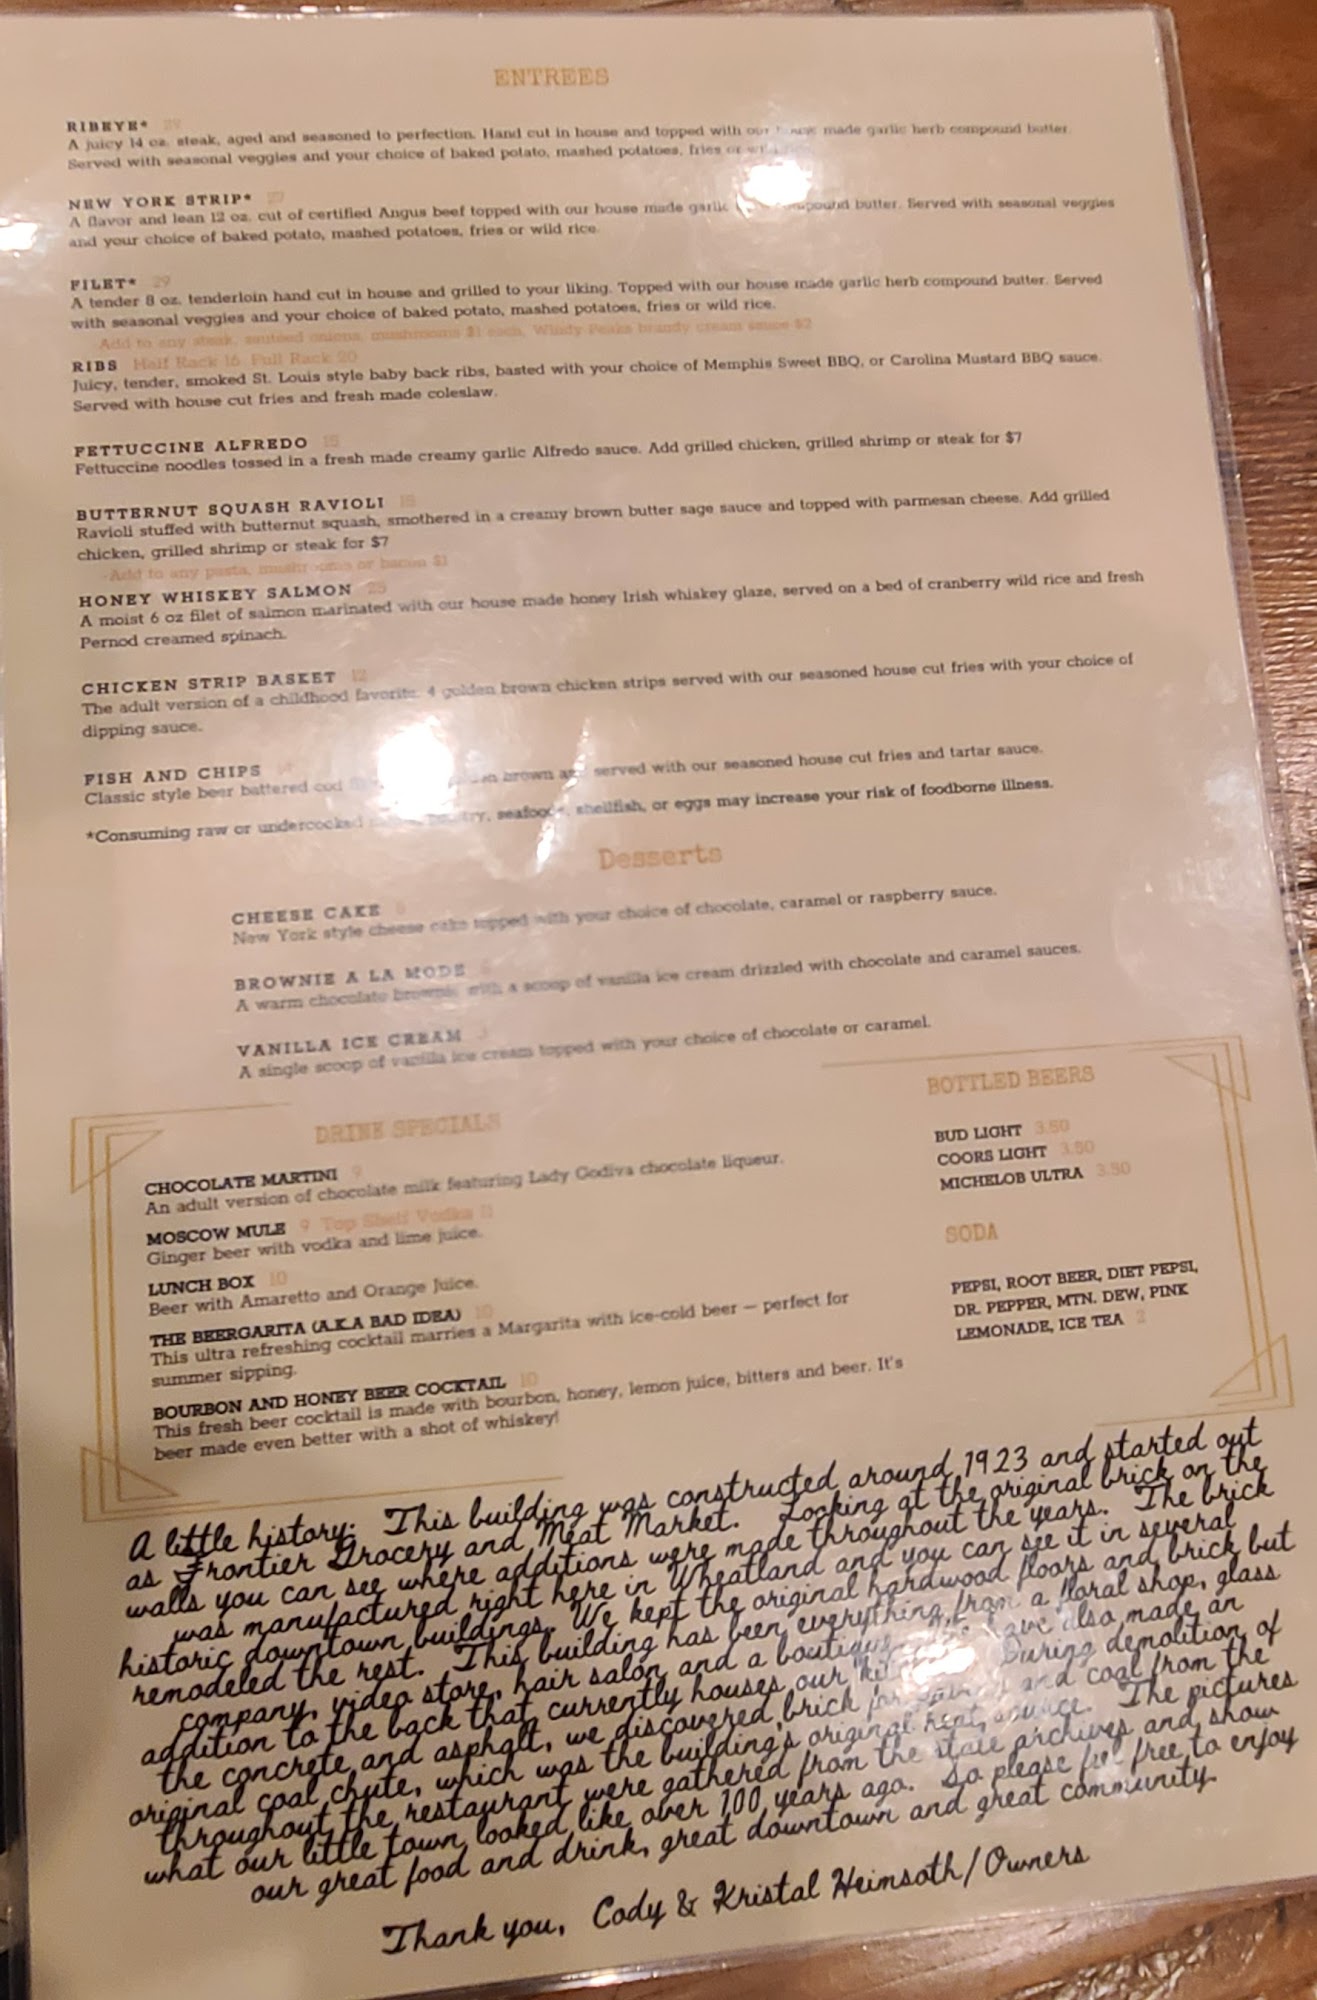 ENTREES
RIBEYE* 29
A juicy 14 oz. steak, aged and seasoned to perfection. Hand cut in house and topped with our house made garlic herb compound butter.
Served with seasonal veggies and your choice of baked potato, mashed potatoes, fries or wild
NEW YORK STRIP* 27
A flavor and lean 12 oz. cut of certified Angus beef topped with our house made garlic compound butter. Served with seasonal veggies
and your choice of baked potato, mashed potatoes, fries or wild rice.
FILET* 29
A tender 8 oz. tenderloin hand cut in house and grilled to your liking. Topped with our house made garlic herb compound butter. Served
with seasonal veggies and your choice of baked potato, mashed potatoes, fries or wild rice.
Add to any steak, sauteed onions, mushrooms $1 each, Windy Peaks brandy cream sauce $2
RIBS Half Rack 16 Full Rack 20
Juicy, tender, smoked St. Louis style baby back ribs, basted with your choice of Memphis Sweet BBQ, or Carolina Mustard BBQ sauce.
Served with house cut fries and fresh made coleslaw.
FETTUCCINE ALFREDO 15
Fettuccine noodles tossed in a fresh made creamy garlic Alfredo sauce. Add grilled chicken, grilled shrimp or steak for $7
BUTTERNUT SQUASH RAVIOLI
Ravioli stuffed with butternut squash, smothered in a creamy brown butter sage sauce and topped with parmesan cheese. Add grilled
chicken, grilled shrimp or steak for $7
-Add to any pasta, mushrooms or bacon $1
HONEY WHISKEY SALMON 25
A moist 6 oz filet of salmon marinated with our house made honey Irish whiskey glaze, served on a bed of cranberry wild rice and fresh
Pernod creamed spinach.
CHICKEN STRIP BASKET 12
The adult version of a childhood favorite. 4 golden brown chicken strips served with our seasoned house cut fries with your choice of
dipping sauce.
FISH AND CHIPS
Classic style beer battered cod brown and served with our seasoned house cut fries and tartar sauce.
*Consuming raw or undercooked poultry, seafood, shellfish, or eggs may increase your risk of foodborne illness.
Desserts
CHEESE CAKE
New York style cheese cake topped with your choice of chocolate, caramel or raspberry sauce.
BROWNIE A LA MODE
A warm chocolate brownie with a scoop of vanilla ice cream drizzled with chocolate and caramel sauces.
VANILLA ICE CREAM 3
A single scoop of vanilla ice cream topped with your choice of chocolate or caramel.
DRINK SPECIALS
CHOCOLATE MARTINI 9
An adult version of chocolate milk featuring Lady Godiva chocolate liqueur.
MOSCOW MULE 9 Top Shelf Vodka 11
Ginger beer with vodka and lime juice.
LUNCH BOX 10
Beer with Amaretto and Orange Juice.
THE BEERGARITA (A.K.A BAD IDEA) 10
This ultra refreshing cocktail marries a Margarita with ice-cold beer — perfect for
summer sipping.
BOURBON AND HONEY BEER COCKTAIL 10
This fresh beer cocktail is made with bourbon, honey, lemon juice, bitters and beer. It's
beer made even better with a shot of whiskey!
BOTTLED BEERS
BUD LIGHT 3.50
COORS LIGHT 3.50
MICHELOB ULTRA 3.50
SODA
PEPSI, ROOT BEER, DIET PEPSI,
DR. PEPPER, MTN. DEW, PINK
LEMONADE, ICE TEA 2
A little history: This building was constructed around 1923 and started out
as Frontier Grocery and Meat Market. Looking at the original brick on the
walls you can see where additions were made throughout the years. The brick
was manufactured right here in Wheatland and you can see it in several
historic downtown buildings. We kept the original hardwood floors and brick but
remodeled the rest. This building has been everything from a floral shop, glass
company, video store, hair salon and a boutique. We have also made an
addition to the back that currently houses our During demolition of
the concrete and asphalt, we discovered brick and coal from the
original coal chute, which was the building's original heat source. The pictures
throughout the restaurant were gathered from the state archives and show
what our little town looked like over 100 years ago. So please feel free to enjoy
our great food and drink, great downtown and great community.
Thank you, Cody & Kristal Heimsoth/Owners